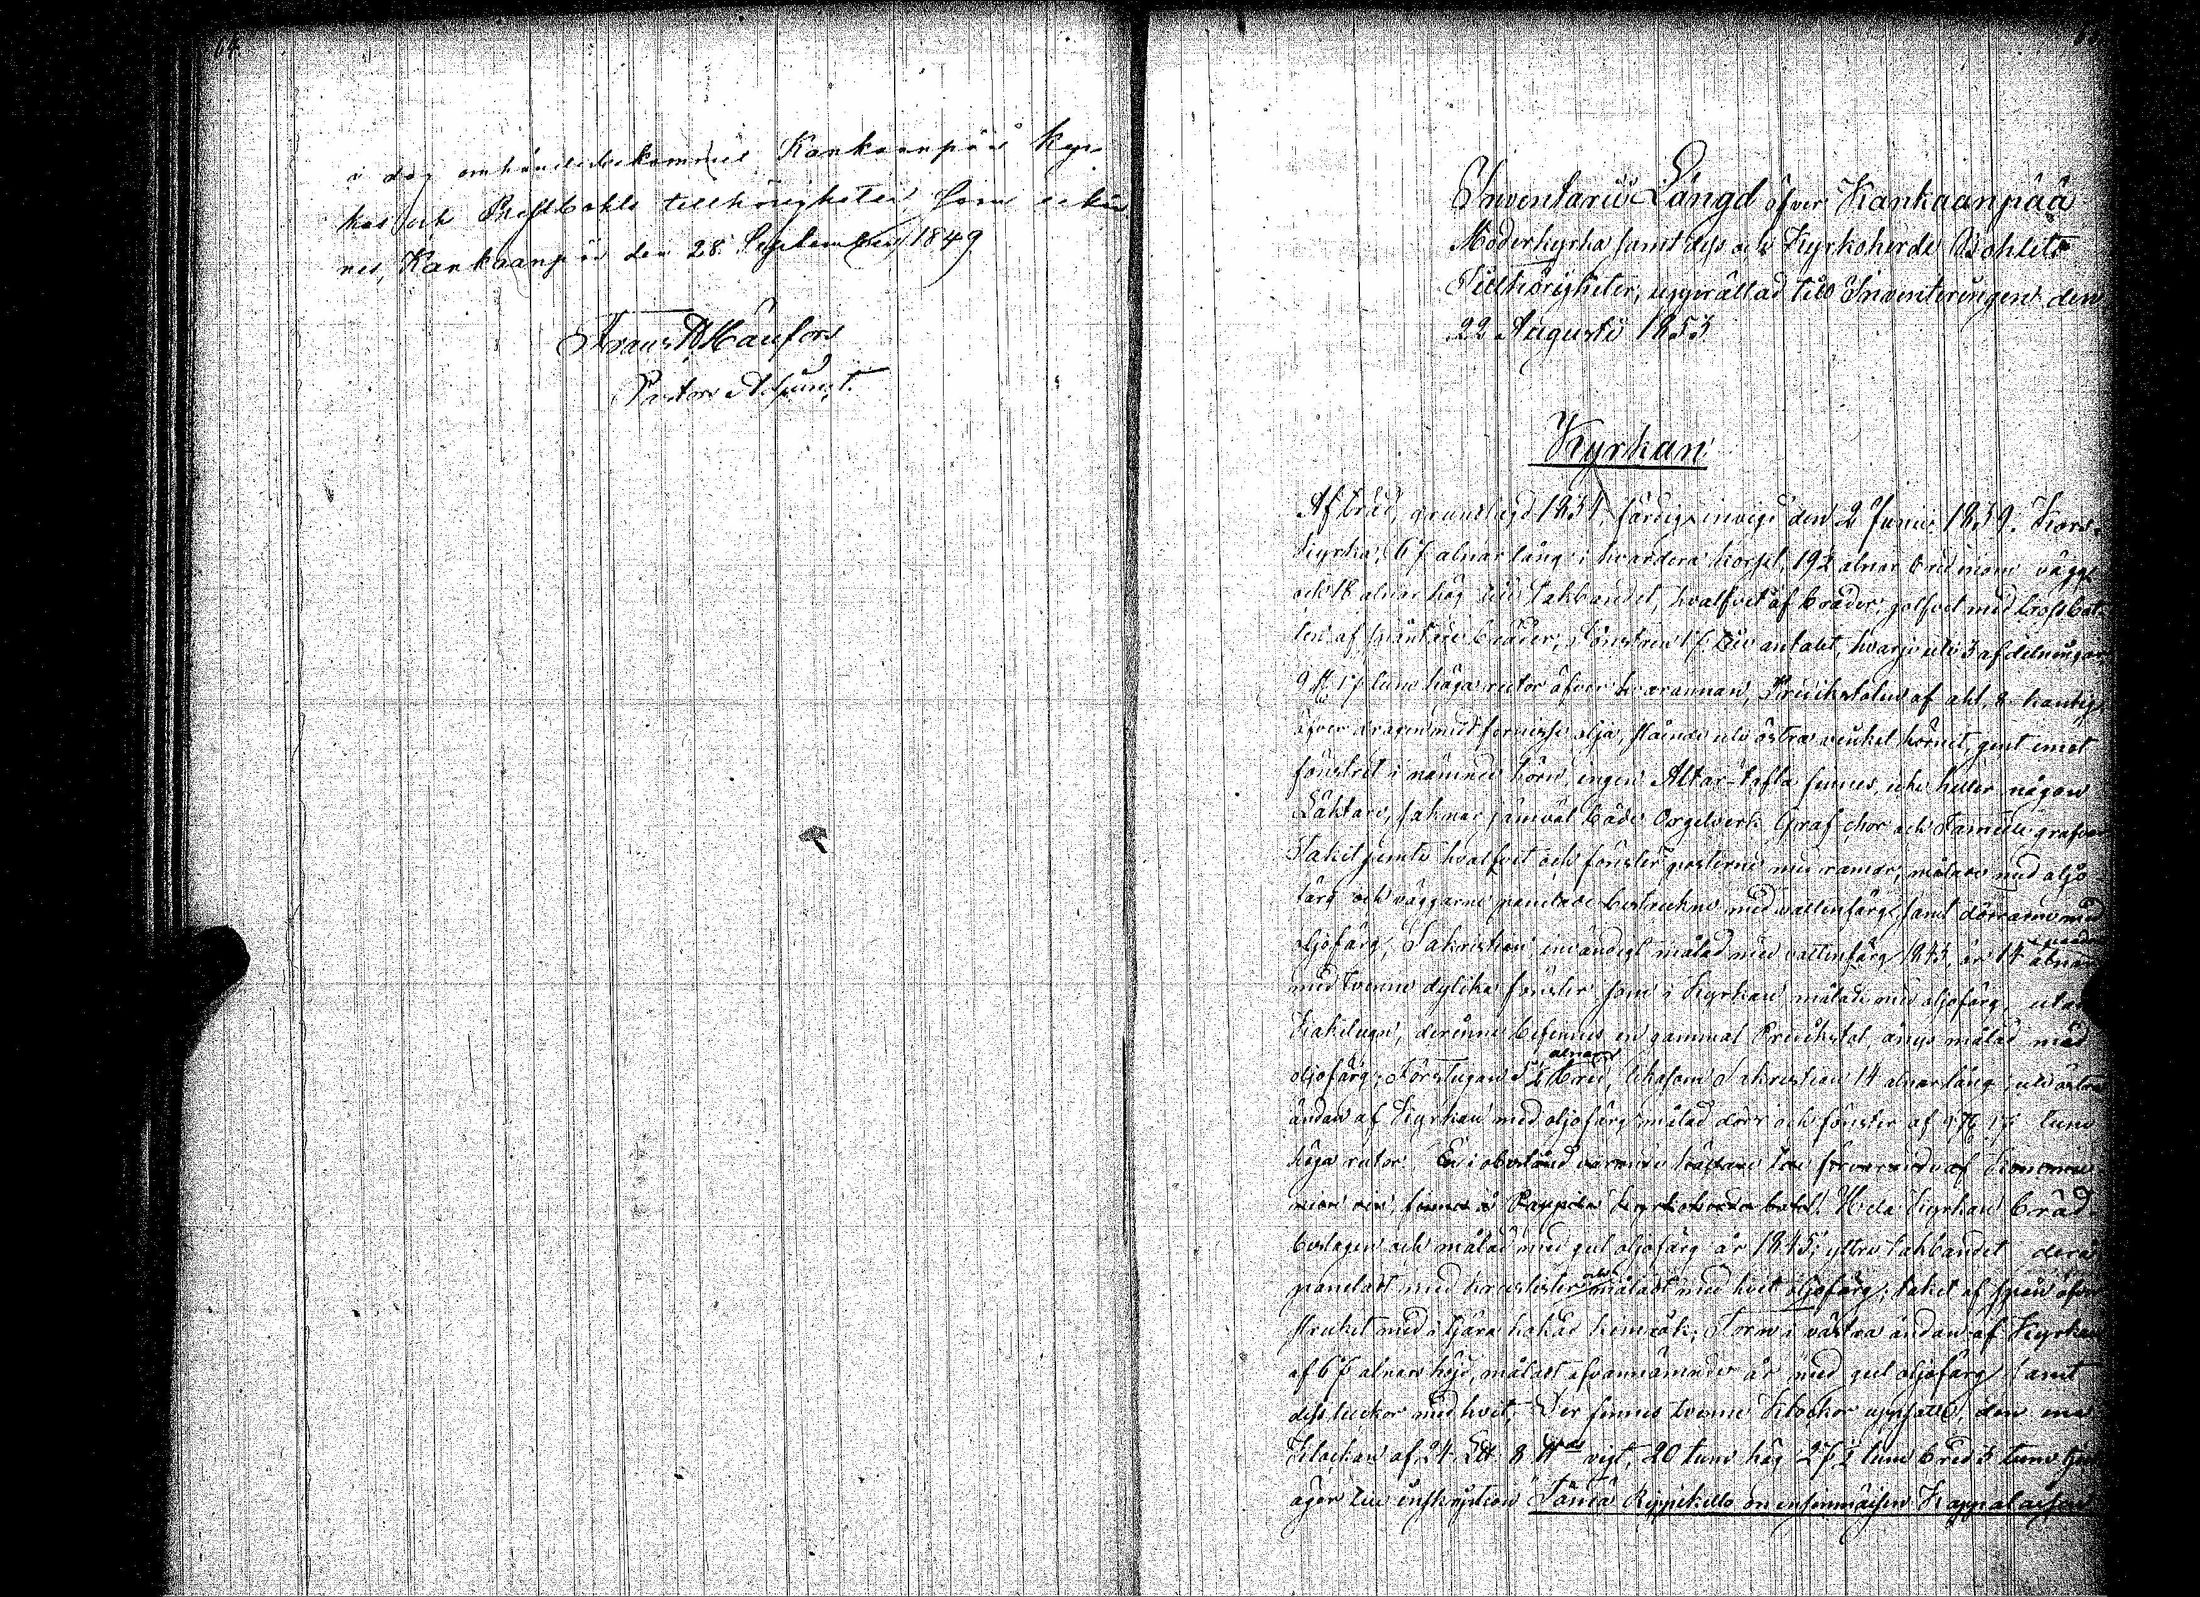 64.
i dag omhänderbekommit Kankaanpää Kyr-
kas och Prestbohls tillhörigheter, som erkän-
nes, Kankaanpää den 28 September 1849
Frans
Pastors Adjunct.
Inventarii Längd öfver Kankaanpää
Moderkyrka samt dess och Kyrkoherde Bohlets
Tillhörigheter, upprättad till Inventeringen den
22 Augusti 1853
Kyrkan
Af träd, grundlagd 1834, färdig invigd den 2 Junii 1839. Kors-
kyrka, 67 alnar lång i hvardera korset, 19½ alnar bred inom vägg
och 18 alnar hög till takbandet, hvalfvet af bräder, golfvet med
af bräder, Fönstren 17 till antalet, hvarje uti 3 afdelningar
9 st. 17 tums höga rutor öfver hvarannan, Predikstolen af ahl, 8-kantig,
öfverdragen med fernissa olja, stående uti östra vinkel hörnet, gent emot
fönstret i nämnde hörn, ingen Altar-tafla finnes, icke heller någon
Läktare, saknar jämväl både Orgelverk Graf chor och Familie grafvar
Taket jemte hvalfvet och fönster posterne med ramar, målade med oljo-
färg och väggarne panelade bestrukne med vattenfärg, samt dörrarne med
oljofärg, Sakristian, invändigt målad med vattenfärg 1843, är 14 alnar
med tvenne dylika fönster som i Kyrkan målade med oljofärg, utan
Kakelugn, derinne befinnes en gammal Predikstol, ånyo målad med
oljofärg; Förstugan alnar bred, likasom Sakristian 14 alnar lång uti östra
ändan af Kyrkan med oljofärg målad dörr och fönster af 9 st 17 tums
höga rutor. En i obestånd varande källare till förvarande af Kommu-
nion vin, finnes å Pappila kyrkoherde bohl. Hela Kyrkan bräd-
beslagen och målad med gul oljofärg år 1845; yttre takbandet
paneladt med måladt med hvit oljofärg; taket af spån öfver-
struket med i tjära kokad kimrök; Torn i västra ändan af Kyrkan
af 67 alnars höjd, måladt ofvannämnde år med gul oljofärg samt
dess luckor med hvit, Der finnes tvenne Klockor uppsatte, den ena
Klockan af 24 L℔ 8 ℔ vigt, 20 tum hög 27½ tum bred 3 tum tjock
äger till inskription Tämä Rippikello on ensimmäisen Kappalaisen